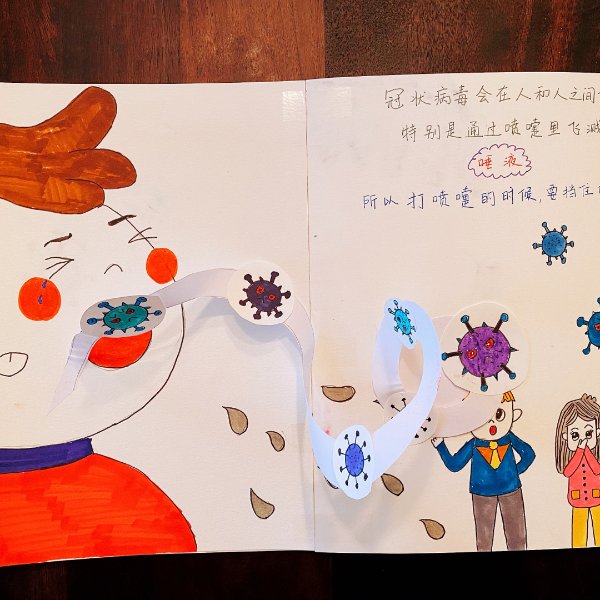 冠状病毒会在人和人之间
特别是通过喷嚏里飞溅
唾液
所以打喷嚏的时候,要挡住